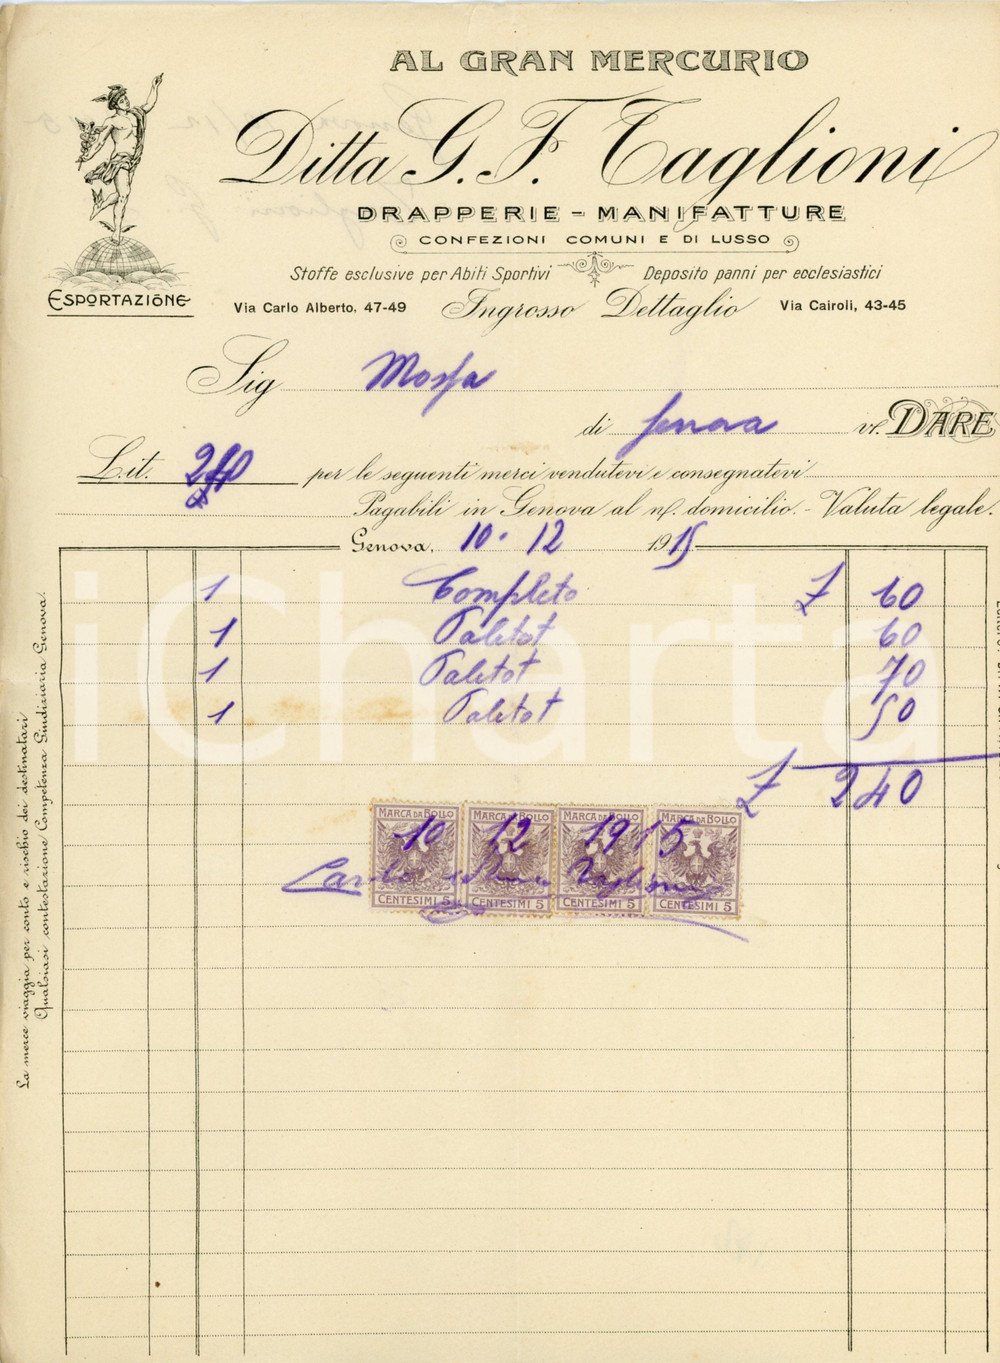 AL GRAN MERCURIO
Ditta G. F. Taglioni
DRAPPERIE - MANIFATTURE
CONFEZIONI COMUNI E DI LUSSO
Stoffe esclusive per Abiti Sportivi Deposito panni per ecclesiastici
ESPORTAZIONE
Via Carlo Alberto, 47-49 Ingrosso Dettaglio Via Cairoli, 43-45
Sig Mosfa
di Genova vs. DARE
Lit. 240 per le seguenti merci vendutevi e consegnatevi
Pagabili in Genova al ns. domicilio. - Valuta legale.
Genova, 10 - 12 1915
1 Completo £ 60
1 Paletot 60
1 Paletot 70
1 Paletot 50
£ 240
MARCA DA BOLLO MARCA DA BOLLO MARCA DA BOLLO MARCA DA BOLLO
10 12 1915
Carlo Taglioni
CENTESIMI 5 CENTESIMI 5 CENTESIMI 5 CENTESIMI 5
La merce viaggia per conto e rischio dei destinatari
Qualsiasi contestazione Competenza Giudiziaria Genova.
iCharta